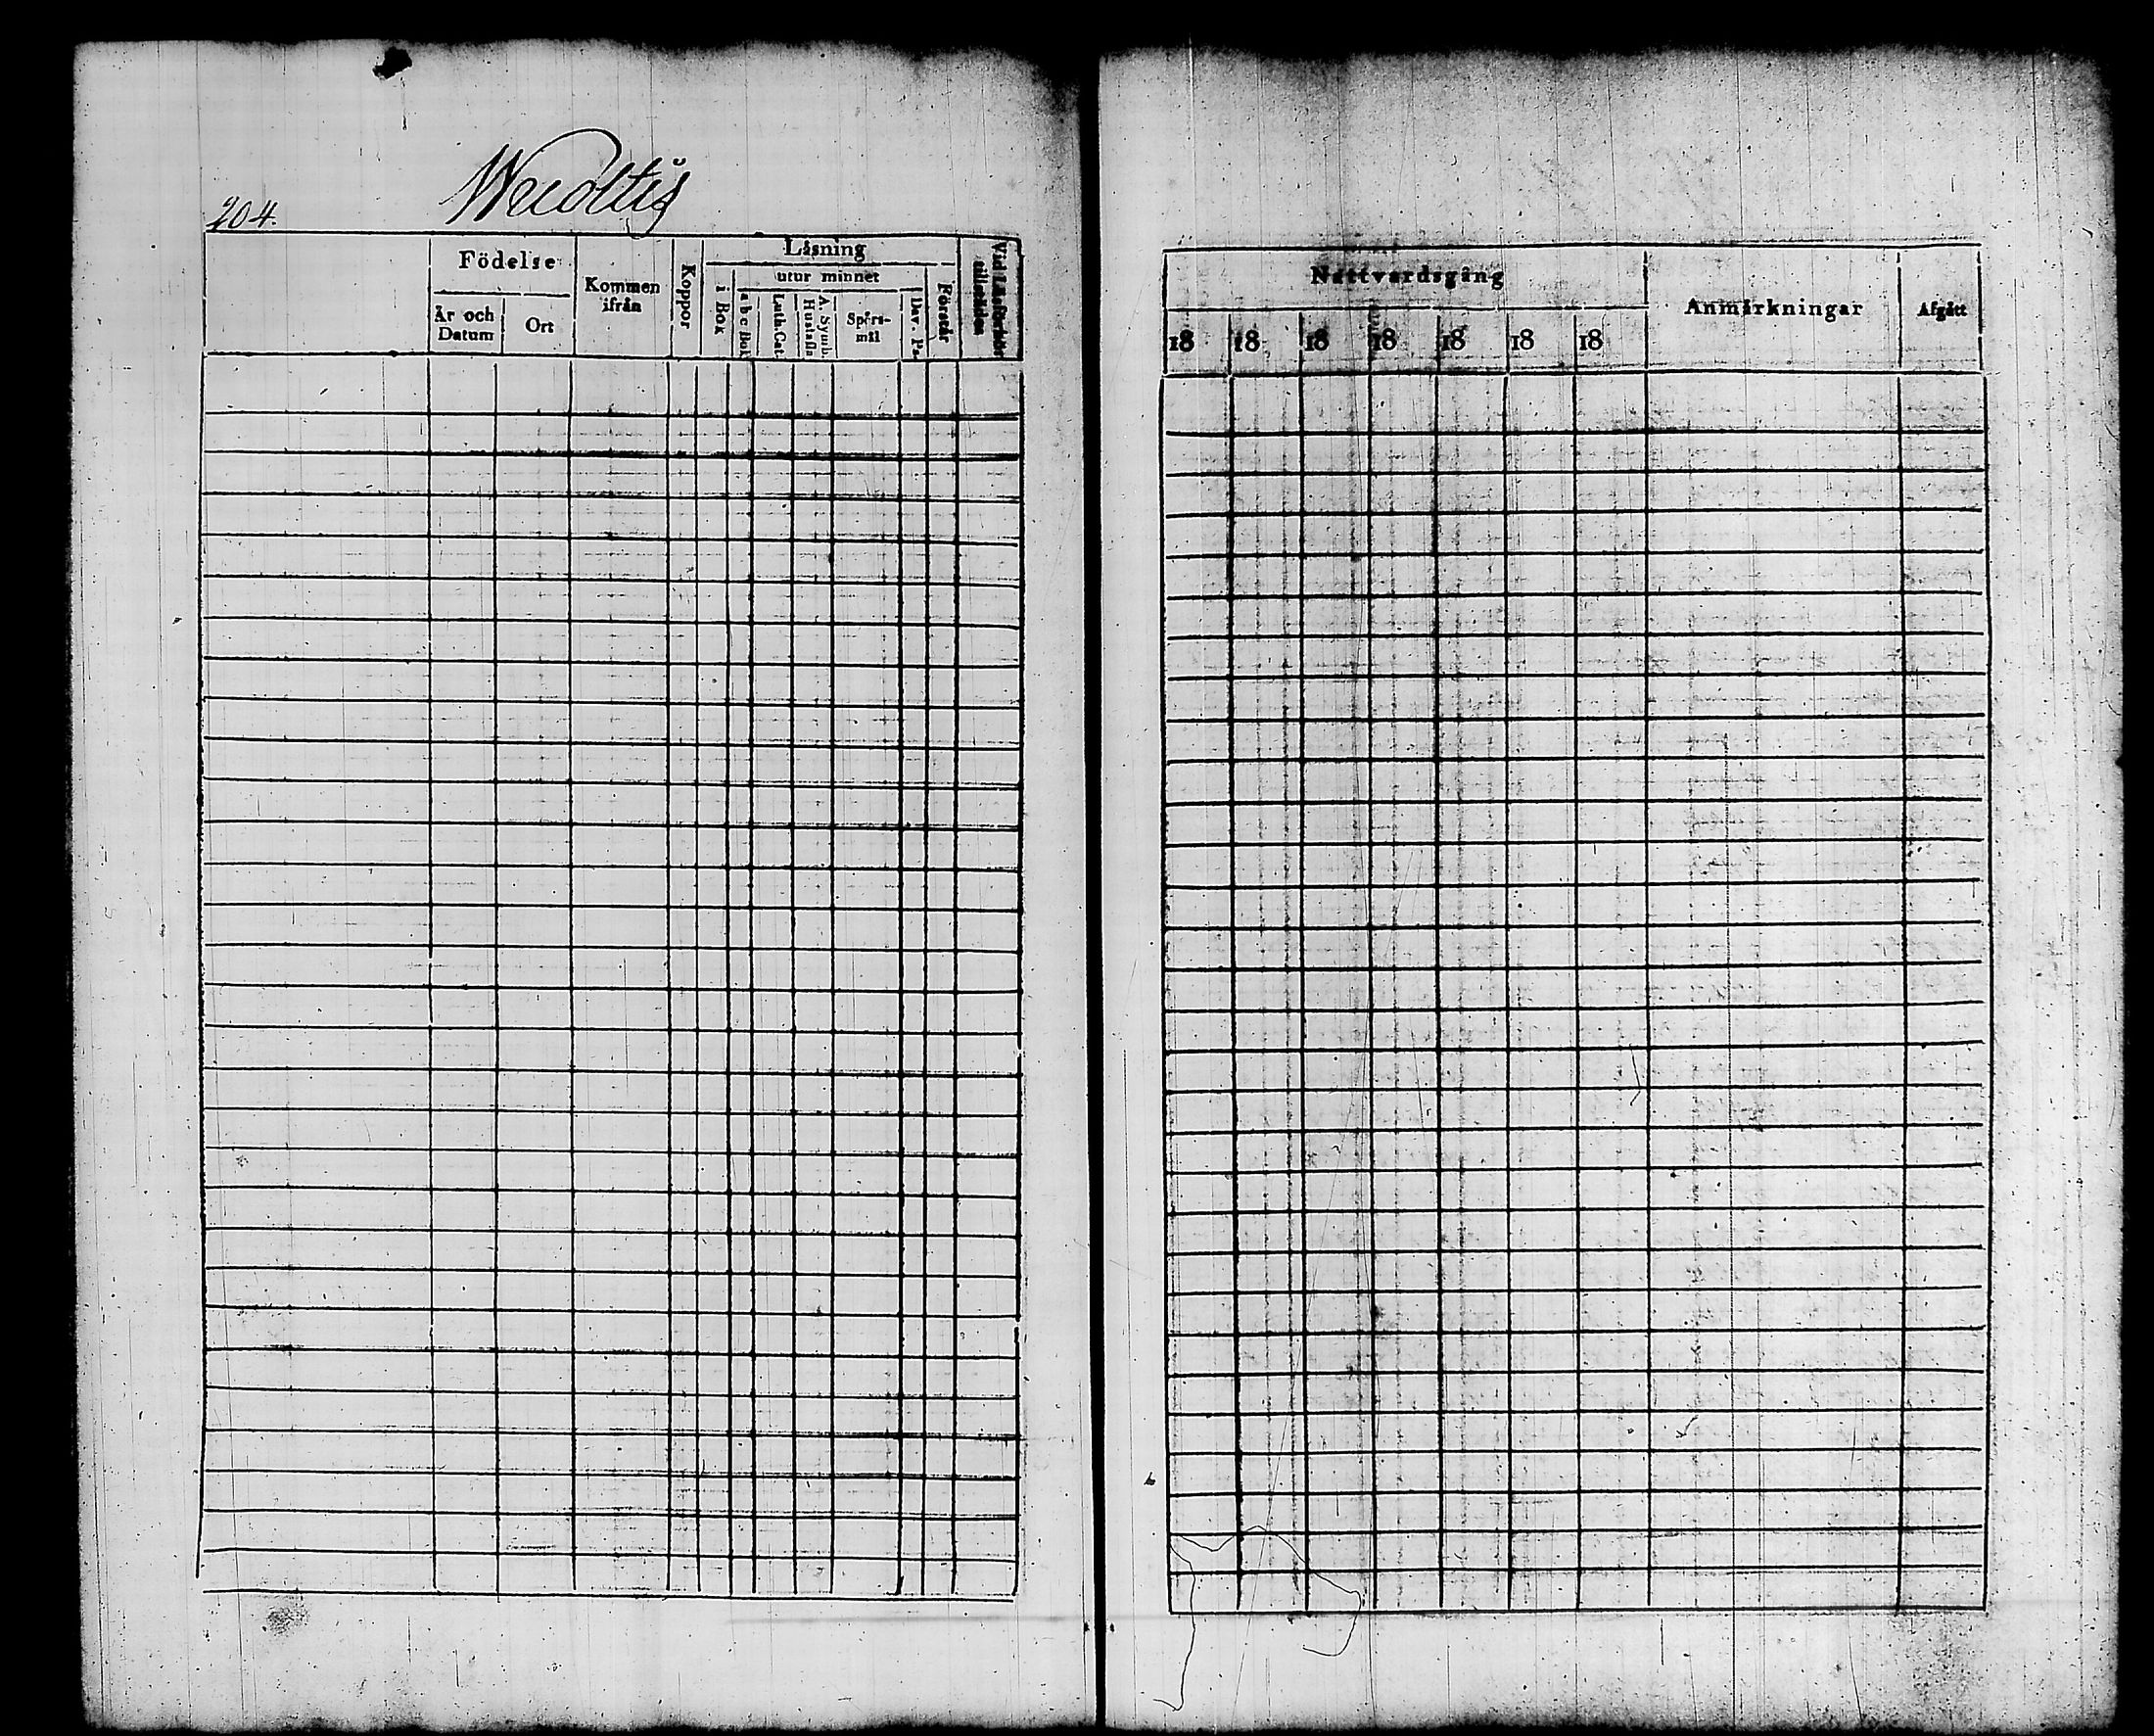 204.
Födelse
År och Datum
Ort
Kommen ifrån
Koppor
Läsning
i Bok
utur minnet
a b c Bok
Luth. Cat.
A. Symb. Hustafla
Spörs-mål
Dav. Ps.
Förstår
Nattvardsgång
18 18 18 18 18 18 18
Anmärkningar
Afgått